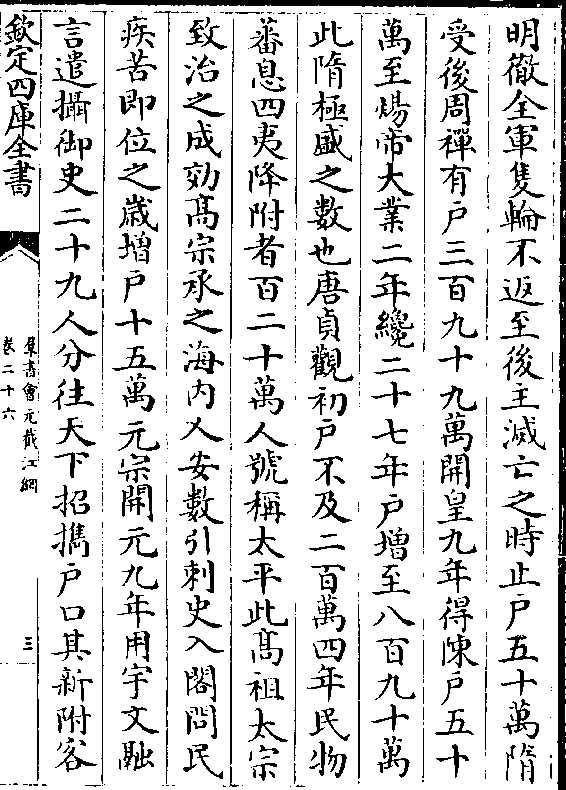 明徹全軍隻輪不返至後主滅亡之時止户五十萬隋
受後周禪有户三百九十九萬開皇九年得陳户五十
萬至煬帝大業二年纔二十七年户增至八百九十萬
此隋極盛之數也唐貞觀初户不及二百萬四年民物
蕃息四夷降附者百二十萬人號稱太平此髙祖太宗
致治之成効髙宗承之海内乂安數引刺史入閤問民
疾苦即位之嵗增户十五萬元宗開元九年用宇文融
言遣攝御史二十九人分往天下招擕户口其新附客
欽定四庫全書
羣書會元截江網
卷二十六
三